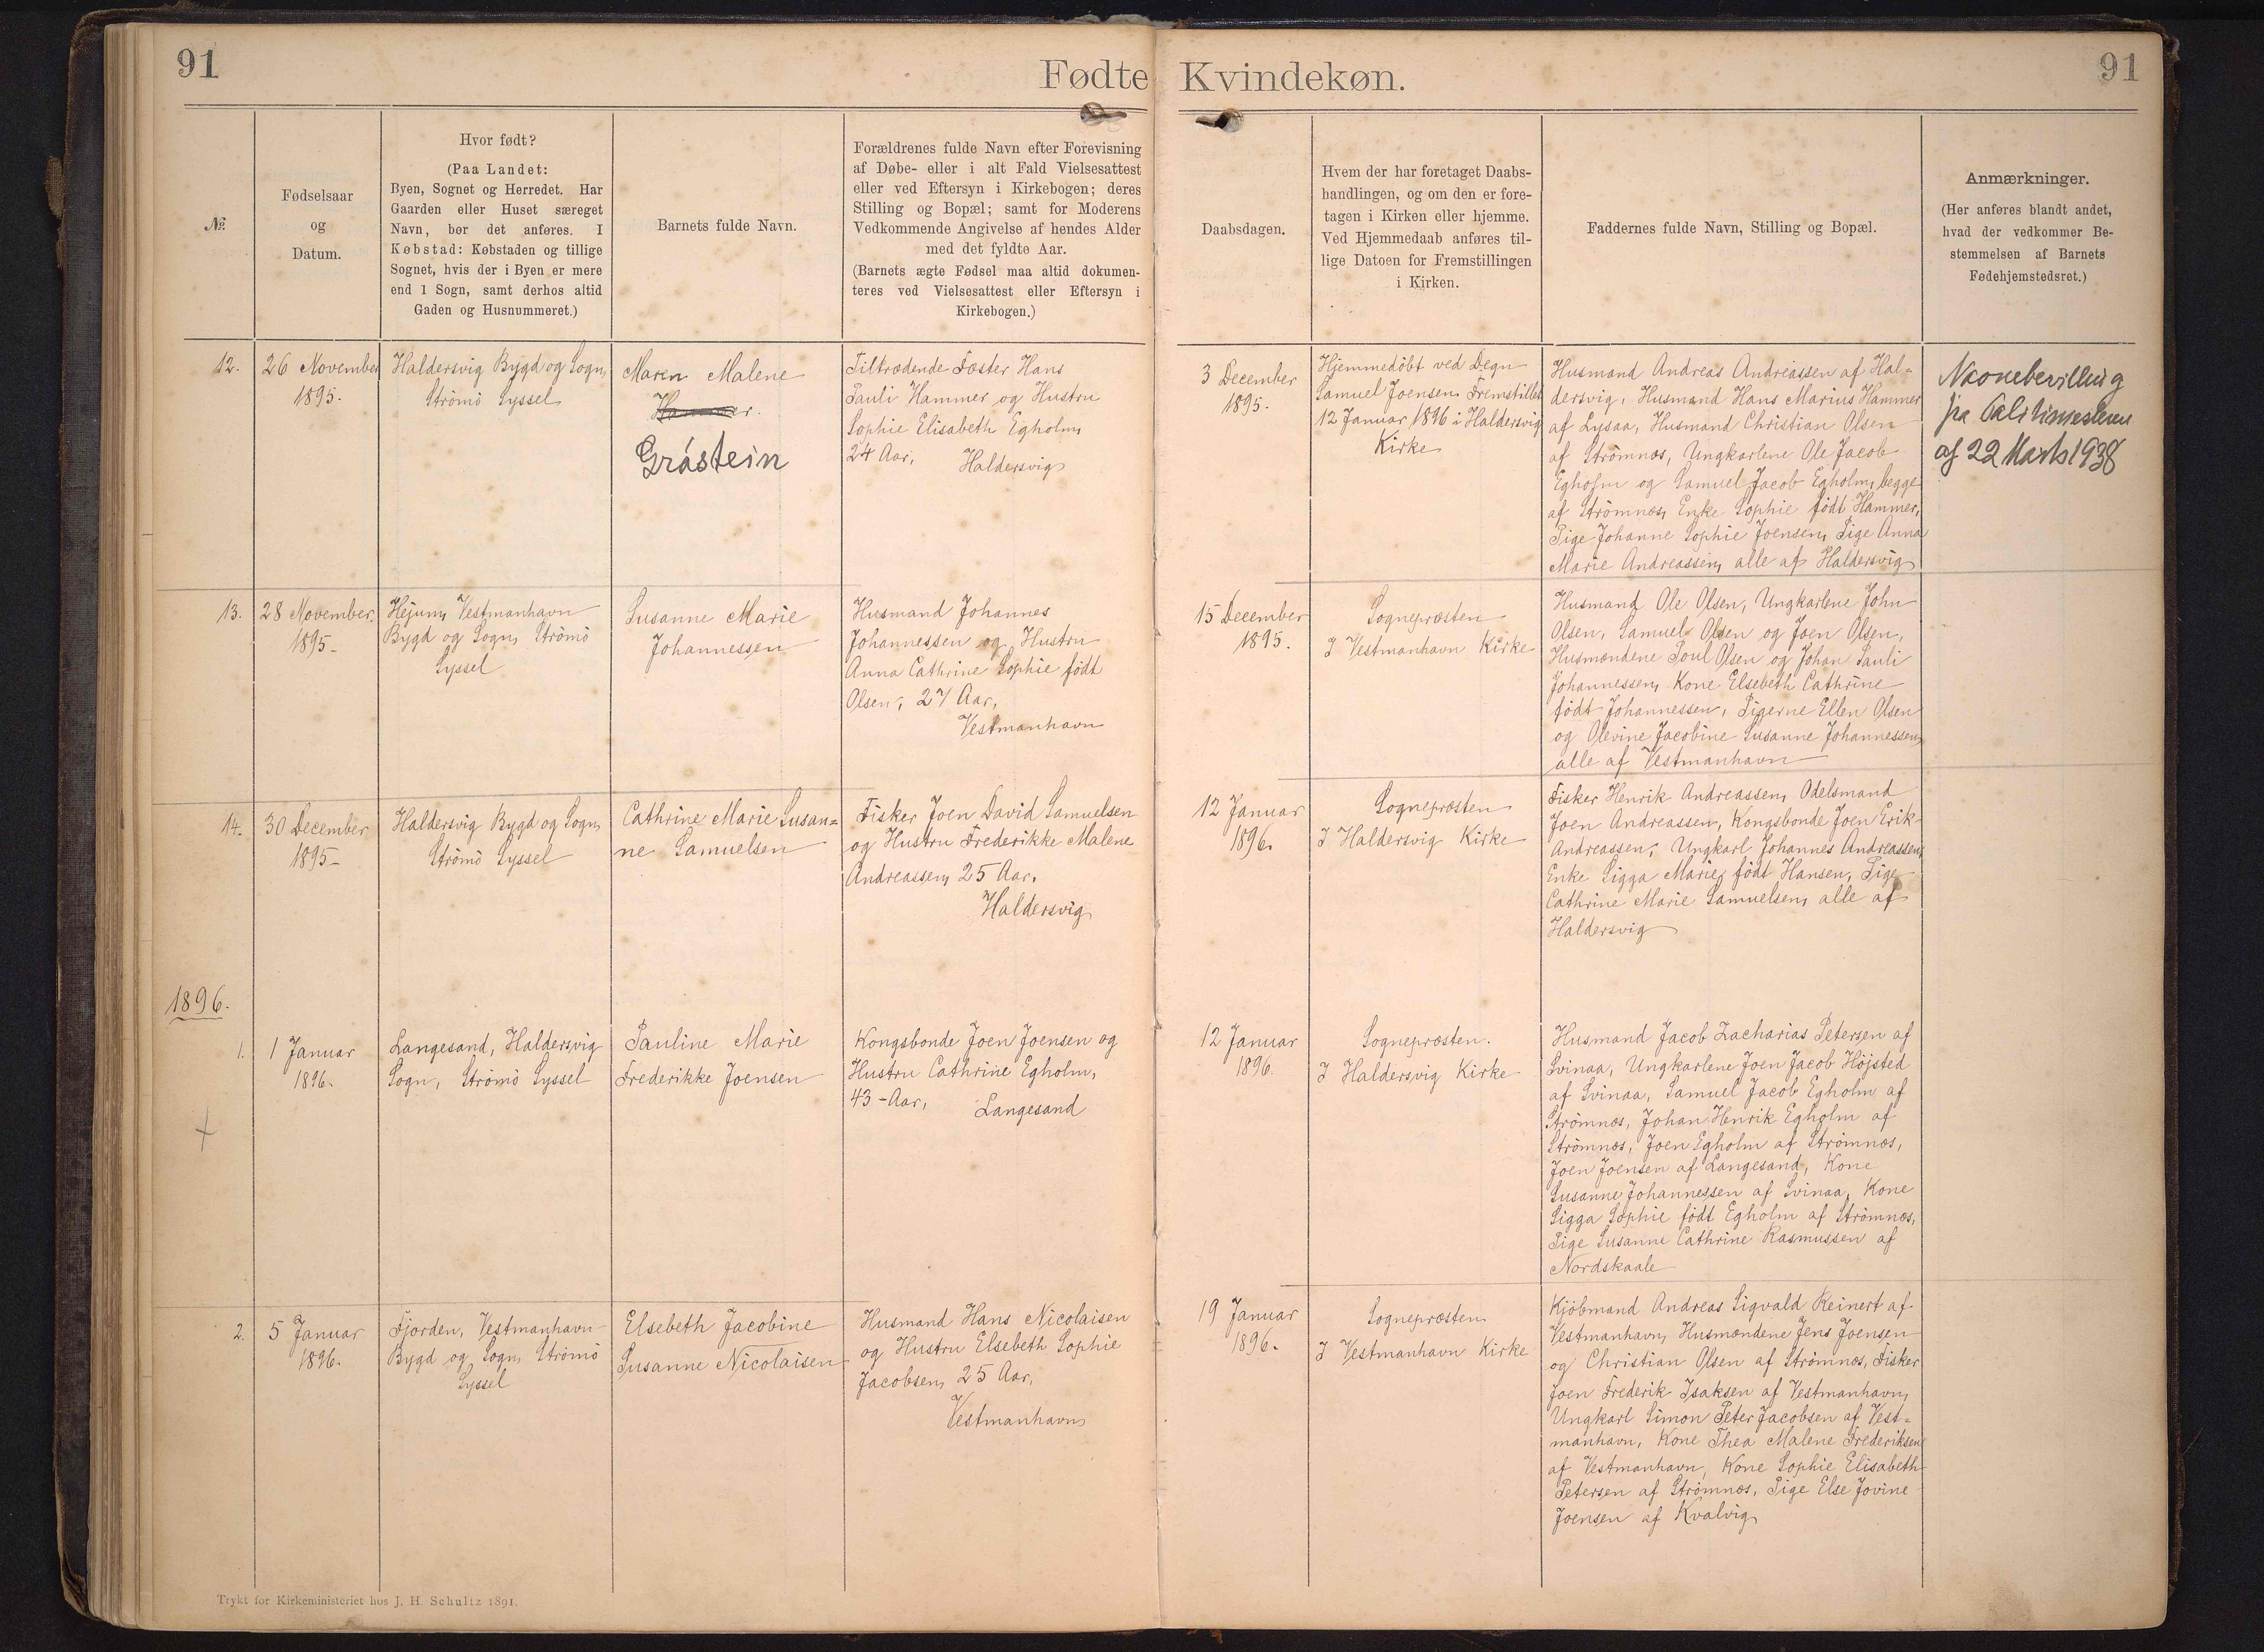 91
Fødte Kvindekøn.
91
№.
Fødselsaar
og
Datum.
Hvor født?
(Paa Landet:
Byen, Sognet og Herredet. Har
Gaarden eller Huset særeget
Navn, bør det anføres. I
Købstad: Købstaden og tillige
Sognet, hvis der i Byen er mere
end 1 Sogn, samt derhos altid
Gaden og Husnummeret.)
Barnets fulde Navn.
Forældrenes fulde Navn efter Forevisning
af Døbe- eller i alt Fald Vielsesattest
eller ved Eftersyn i Kirkebogen; deres
Stilling og Bopæl; samt for Moderens
Vedkommende Angivelse af hendes Alder
med det fyldte Aar.
(Barnets ægte Fødsel maa altid dokumen-
teres ved Vielsesattest eller Eftersyn i
Kirkebogen.)
Daabsdagen.
Hvem der har foretaget Daabs-
handlingen, og om den er fore-
tagen i Kirken eller hjemme.
Ved Hjemmedaab anføres til-
lige Datoen for Fremstillingen
i Kirken.
Faddernes fulde Navn, Stilling og Bopæl.
Anmærkninger.
(Her anføres blandt andet,
hvad der vedkommer Be-
stemmelsen af Barnets
Fødehjemstedsret.)
12.
26 November
1895.
Haldersvig Bygd og Sogn,
Strömö Syssel
Maren Malene
Hammer.
Grástein
Tiltrædende Fæster Hans
Pauli Hammer og Hustru
Sophie Elisabeth Egholm,
24 Aar, Haldersvig
3 December
1895.
Hjemmedöbt ved Degn
Samuel Joensen. Fremstillet
12 Januar 1896 i Haldersvig
Kirke
Husmand Andreas Andreassen af Hal=
dersvig, Husmand Hans Marius Hammer
af Lysaa, Husmand Christian Olsen
af Strömnæs, Ungkarlene Ole Jacob
Egholm og Samuel Jacob Egholm, begge
af Strömnæs, Enke Sophie födt Hammer,
Pige Johanne Sophie Joensen, Pige Anna
Marie Andreassen, alle af Haldersvig
Navnebevilling
fra
af 22 Marts 1938
13.
28 November.
1895-
Hejum, Vestmanhavn
Bygd og Sogn, Strömö
Syssel
Susanne Marie
Johannessen
Husmand Johannes
Johannessen og Hustru
Anna Cathrine Sophie födt
Olsen, 27 Aar,
Vestmanhavn
15 December
1895.
Sognepræsten
I Vestmanhavn Kirke
Husmand Ole Olsen, Ungkarlene John
Olsen, Samuel Olsen og Joen Olsen,
Husmændene Poul Olsen og Johan Pauli
Johannessen, Kone Elsebeth Cathrine
födt Johannessen, Pigerne Ellen Olsen
og Olevine Jacobine Susanne Johannessen,
alle af Vestmanhavn
14.
30 December
1895-
Haldersvig Bygd og Sogn,
Strömö Syssel
Cathrine Marie Susan=
ne Samuelsen
Fisker Joen David Samuelsen
og Hustru Frederikke Malene
Andreassen, 25 Aar,
Haldersvig
12 Januar
1896.
Sognepræsten
I Haldersvig Kirke
Fisker Henrik Andreassen, Odelsmand
Joen Andreassen, Kongsbonde Joen Erik
Andreassen, Ungkarl Johannes Andreassen,
Enke Sigga Marie, födt Hansen, Pige
Cathrine Marie Samuelsen, alle af
Haldersvig
1896.
1.
1 Januar
1896.
Langesand, Haldersvig
Sogn, Strömö Syssel
Pauline Marie
Frederikke Joensen
Kongsbonde Joen Joensen og
Hustru Cathrine Egholm,
43-Aar, Langesand
12 Januar
1896.
Sognepræsten.
I Haldersvig Kirke
Husmand Jacob Zacharias Petersen af
Svinaa, Ungkarlene Joen Jacob Höjsted
af Svinaa, Samuel Jacob Egholm af
Strömnæs, Johan Henrik Egholm af
Strömnæs, Joen Egholm af Strömnæs,
Joen Joensen af Langesand, Kone
Susanne Johannessen af Svinaa, Kone
Sigga Sophie födt Egholm af Strömnæs,
Pige Susanne Cathrine Rasmussen af
Nordskaale
2.
5 Januar
1896.
Fjorden, Vestmanhavn
Bygd og Sogn, Strömö
Syssel
Elsebeth Jacobine
Susanne Nicolaisen
Husmand Hans Nicolaisen
og Hustru Elsebeth Sophie
Jacobsen, 25 Aar,
Vestmanhavn
19 Januar
1896.
Sognepræsten
I Vestmanhavn Kirke
Kjöbmand Andreas Sigvald Reinert af
Vestmanhavn, Husmændene Jens Joensen
og Christian Olsen af Strömnæs, Fisker
Joen Frederik Isaksen af Vestmanhavn,
Ungkarl Simon Peter Jacobsen af Vest=
manhavn, Kone Thea Malene Frederiksen
af Vestmanhavn, Kone Sophie Elisabeth
Petersen af Strömnæs, Pige Else Jovine
Joensen af Kvalvig
Trykt for Kirkeministeriet hos J. H. Schultz 1891.